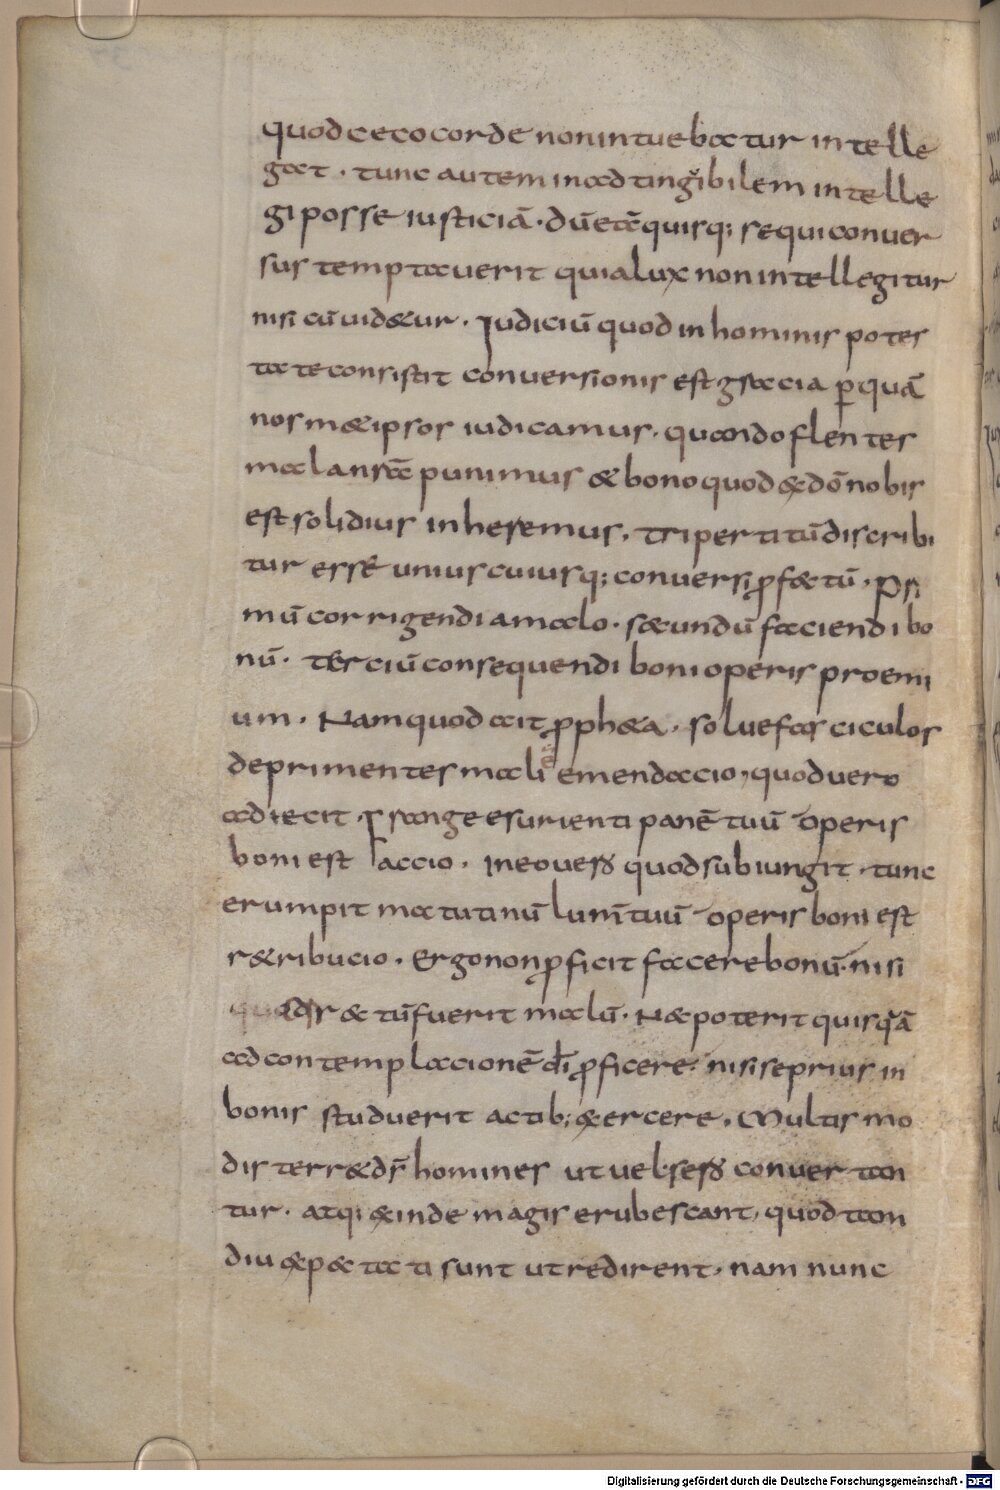 quod ceco corde non intuebatur intelle
gat · tunc autem inadtingibilem intelle
gi posse iusticiā · dū etā quisq; se qui conuer
sus temptauerit quia lux non intellegitur
nisi cū uidetur · Iudiciū quod in hominis potes
tate consistit conuersionis est gracia p quā
nosmetipsos iudicamus · quando flentes
mala nr̄a punimus & bono quod ex dō nobis
est solidius inheremus · Tripertitū discribi
tur esse uniuscuiusq; conuersi pfectū · Pri
mū corrigendi a malo · secundū faciendi bo
nū · Terciū consequendi boni operis proemi
um · Nam quod ait ppheta · solue fasciculos
deprimentes mali emendaccio, quod uero
adiecit · Frange esurienti panē tuū operis
boni est accio · in eo uero quod subiungit · tunc
erumpit matutinū lum̄ tuū operis boni est
retribucio · Ergo non pficit facere bonū · nisi
& tū fuerit malū · Nec poterit quisquā
ad contemplacionē dī pficere · nisi se prius in
bonis studuerit actib; exercere · Multis mo
dis terret dſ̄ homines ut uel sero conuertan
tur · atq; exinde magis erubescant, quod tam
diu expectati sunt ut redirent · nam nunc
Digitalisierung gefördert durch die Deutsche Forschungsgemeinschaft - DFG